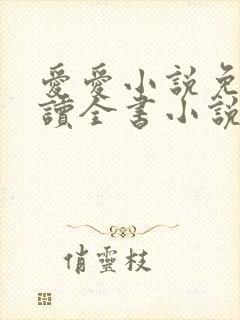 愛愛小說免
讀全書小說
俏靈枝